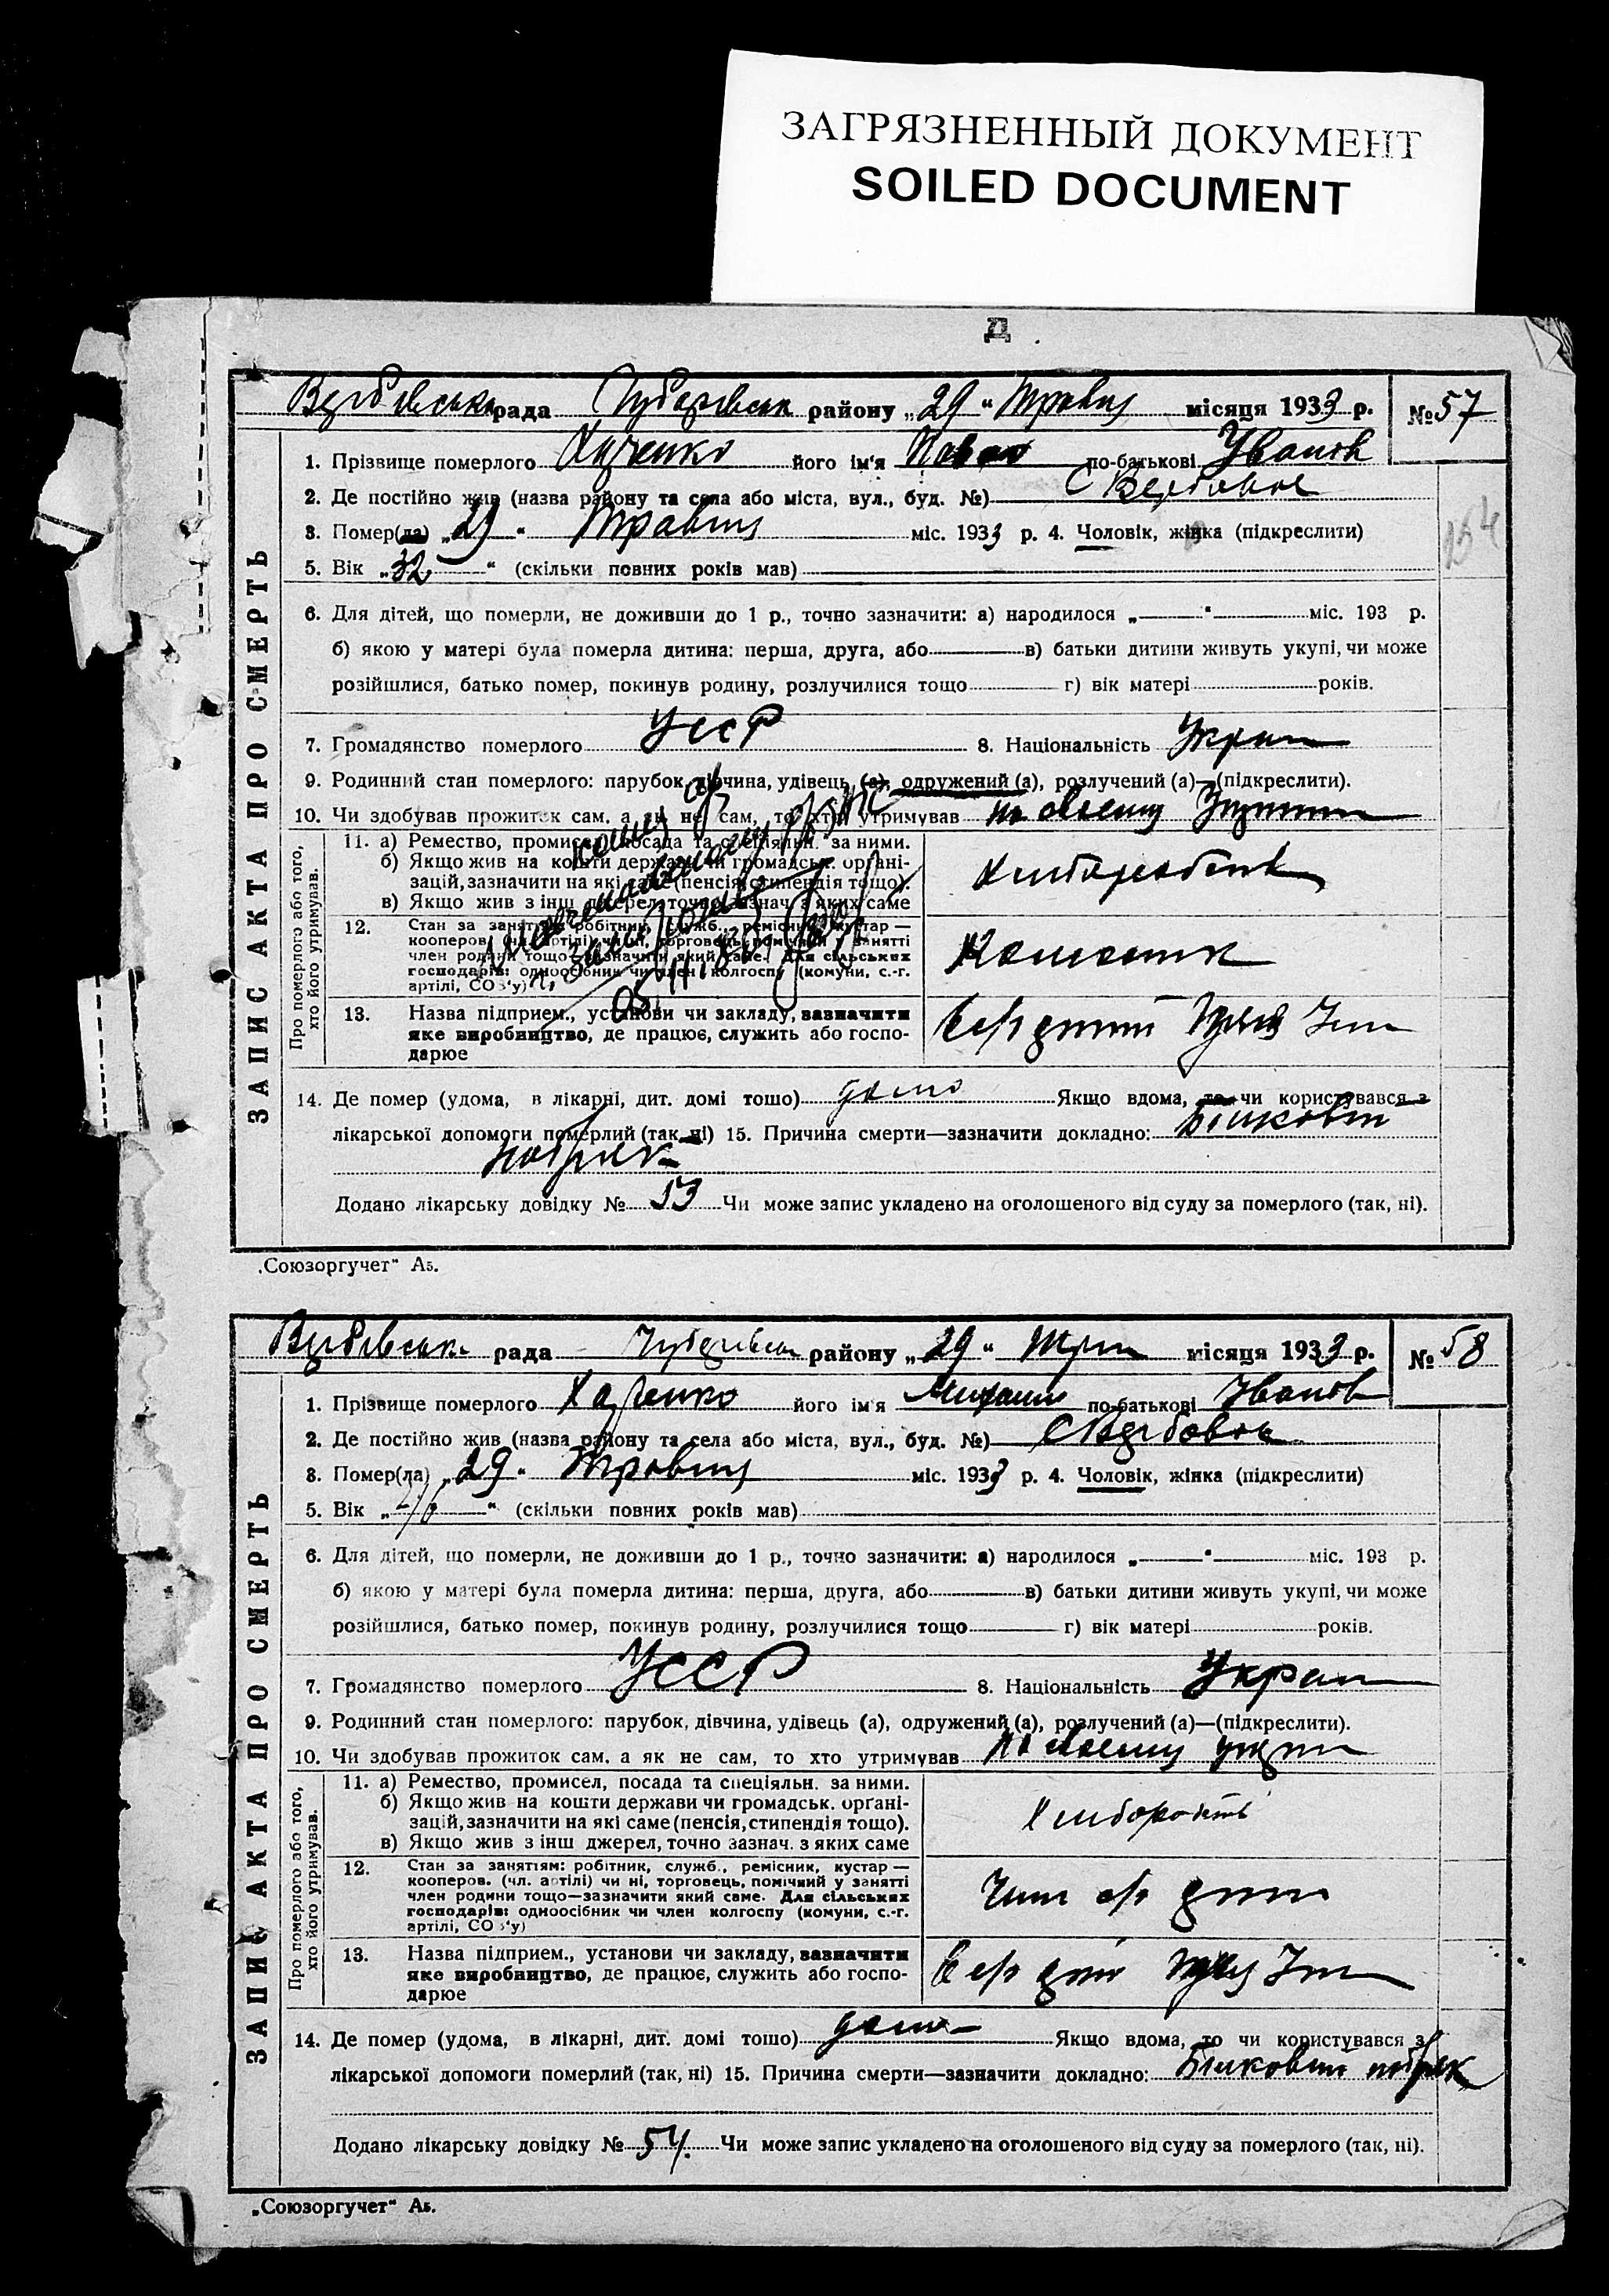 ЗАГРЯЗНЕННЫЙ ДОКУМЕНТ
SOILED DOCUMENT
Д
рада району „29“ Травня місяця 1933 р. № 57
ЗАПИС АКТА ПРО СМЕРТЬ
1. Прізвище померлого його ім'я Павло по-батькові Іванов
2. Де постійно жив (назва району та села або міста, вул., буд. №) с Вербовое
3. Помер(ла) „29“ Травня міс. 1933 р. 4. Чоловік, жінка (підкреслити)
154
5. Вік „32“ (скільки повних років мав)
6. Для дітей, що померли, не доживши до 1 р., точно зазначити: а) народилося „ “ міс. 193 р.
б) якою у матері була померла дитина: перша, друга, або в) батьки дитини живуть укупі, чи може
розійшлися, батько помер, покинув родину, розлучилися тощо г) вік матері років.
7. Громадянство померлого УССР 8. Національність Украи
9. Родинний стан померлого: парубок, дівчина, удівець (а), одружений (а), розлучений (а)—(підкреслити).
10. Чи здобував прожиток сам, а як не сам, то хто утримував по своему
Про померлого або того, хто його утримував.
11. а) Ремество, промисел, посада та спеціяльн. за ними.
б) Якщо жив на кошти держави чи громадськ. органі-
зацій, зазначити на які саме (пенсія, стипендія тощо).
в) Якщо жив з інш джерел, точно зазнач. з яких саме
Хлибороб
12. Стан за заняттям: робітник, служб., ремісник, кустар —
кооперов. (чл. артілі) чи ні, торговець, помічний у занятті
член родини тощо—зазначити який саме. Для сільських
господарів: одноосібник чи член колгоспу (комуни, с.-г.
артілі, СОЗ'у)
13. Назва підприєм., установи чи закладу, зазначити
яке виробництво, де працює, служить або госпо-
дарює
14. Де помер (удома, в лікарні, дит. домі тощо) дома Якщо вдома, то чи користувався з
лікарської допомоги померлий (так, ні) 15. Причина смерти—зазначити докладно: Білковий
набряк
Додано лікарську довідку № 53 Чи може запис укладено на оголошеного від суду за померлого (так, ні).
„Союзоргучет“ А5.
рада району „29“ місяця 1933 р. № 58
ЗАПИС АКТА ПРО СМЕРТЬ
1. Прізвище померлого його ім'я Михайло по-батькові Іванов
2. Де постійно жив (назва району та села або міста, вул., буд. №) с Вербовое
3. Помер(ла) „29“ Травня міс. 1933 р. 4. Чоловік, жінка (підкреслити)
5. Вік „ “ (скільки повних років мав)
6. Для дітей, що померли, не доживши до 1 р., точно зазначити: а) народилося „ “ міс. 193 р.
б) якою у матері була померла дитина: перша, друга, або в) батьки дитини живуть укупі, чи може
розійшлися, батько помер, покинув родину, розлучилися тощо г) вік матері років.
7. Громадянство померлого УССР 8. Національність Украи
9. Родинний стан померлого: парубок, дівчина, удівець (а), одружений (а), розлучений (а)—(підкреслити).
10. Чи здобував прожиток сам, а як не сам, то хто утримував по своему
Про померлого або того, хто його утримував.
11. а) Ремество, промисел, посада та спеціяльн. за ними.
б) Якщо жив на кошти держави чи громадськ. органі-
зацій, зазначити на які саме (пенсія, стипендія тощо).
в) Якщо жив з інш джерел, точно зазнач. з яких саме
12. Стан за заняттям: робітник, служб., ремісник, кустар —
кооперов. (чл. артілі) чи ні, торговець, помічний у занятті
член родини тощо—зазначити який саме. Для сільських
господарів: одноосібник чи член колгоспу (комуни, с.-г.
артілі, СОЗ'у)
13. Назва підприєм., установи чи закладу, зазначити
яке виробництво, де працює, служить або госпо-
дарює
14. Де помер (удома, в лікарні, дит. домі тощо) дома Якщо вдома, то чи користувався з
лікарської допомоги померлий (так, ні) 15. Причина смерти—зазначити докладно: Білковий набряк
Додано лікарську довідку № 54 Чи може запис укладено на оголошеного від суду за померлого (так, ні).
„Союзоргучет“ А5.